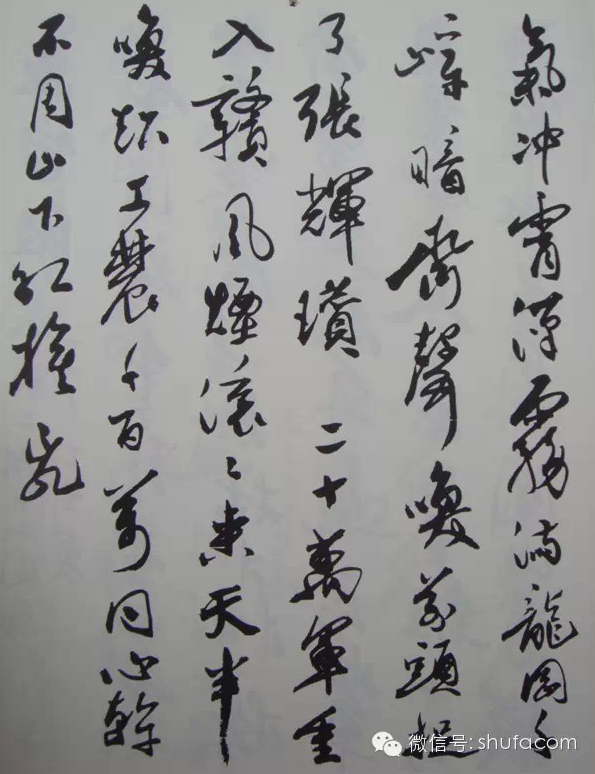 氣冲霄漢霧滿龍岡千
嶂暗齊聲喚前頭捉
了張輝瓚 二十萬軍重
入贛風煙滾〻來天半
喚起工農千百萬同心幹
不周山下紅旗亂
微信号: shufacom